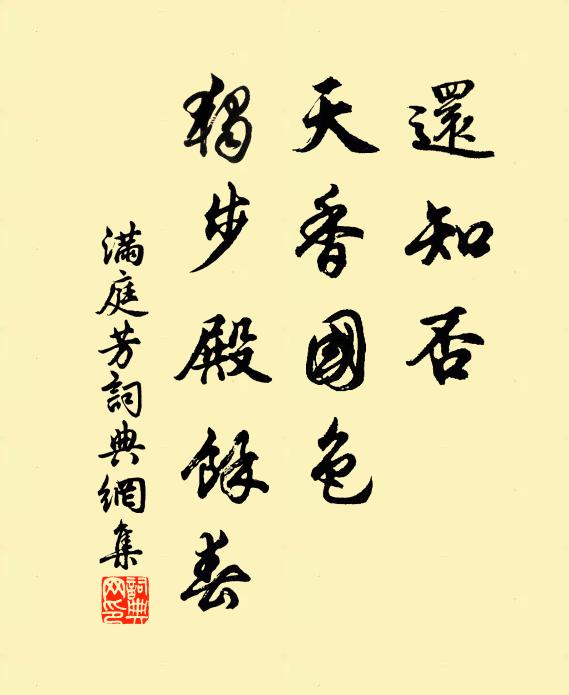 還知否
天香國色
獨步殿餘春
滿庭芳詞典網集
詞典網印